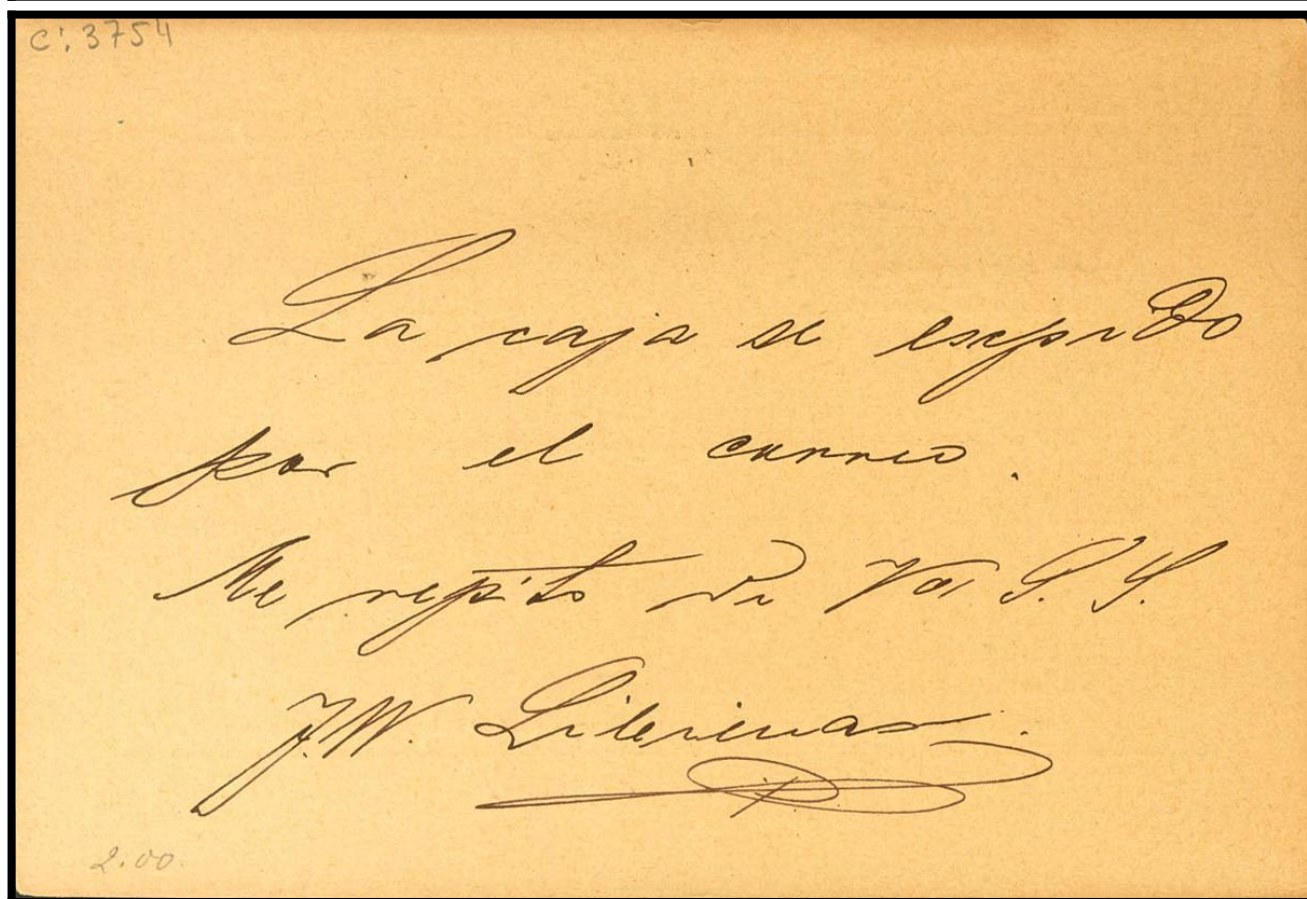 C: 3754
La caja se expido
por el correo.
Me repito de Vd S. S.
J.W.
2.00